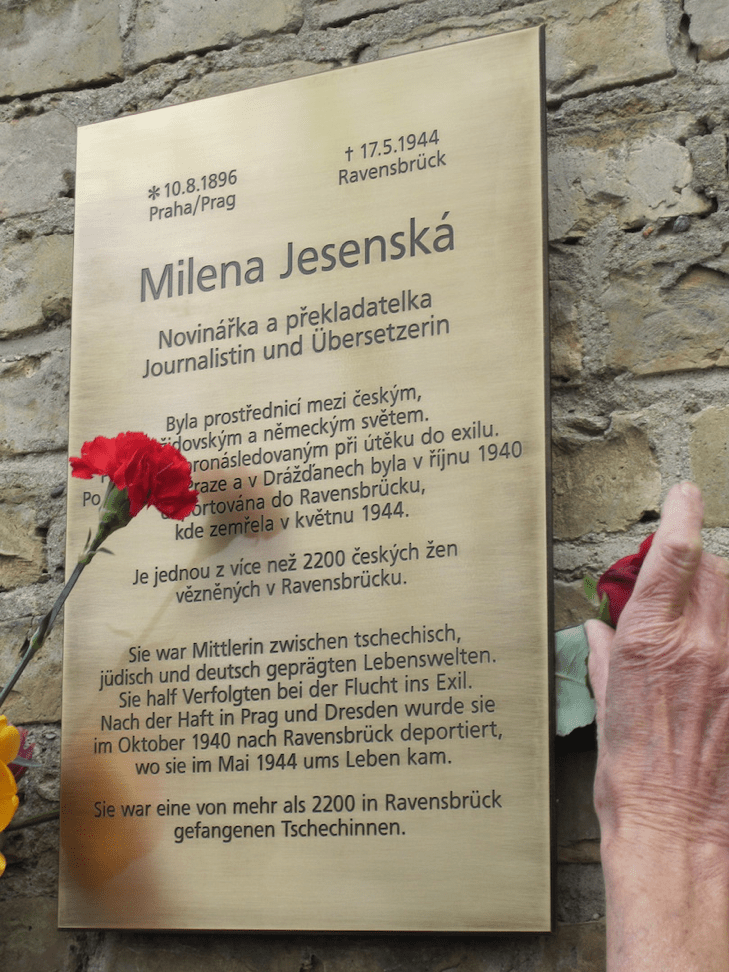 *10.8.1896
Praha/Prag
† 17.5.1944
Ravensbrück
Milena Jesenská
Novinářka a překladatelka
Journalistin und Übersetzerin
Byla prostřednicí mezi českým,
židovským a německým světem.
pronásledovaným při útěku do exilu.
Po Praze a v Drážďanech byla v říjnu 1940
deportována do Ravensbrücku,
kde zemřela v květnu 1944.
Je jednou z více než 2200 českých žen
vězněných v Ravensbrücku.
Sie war Mittlerin zwischen tschechisch,
jüdisch und deutsch geprägten Lebenswelten.
Sie half Verfolgten bei der Flucht ins Exil.
Nach der Haft in Prag und Dresden wurde sie
im Oktober 1940 nach Ravensbrück deportiert,
wo sie im Mai 1944 ums Leben kam.
Sie war eine von mehr als 2200 in Ravensbrück
gefangenen Tschechinnen.